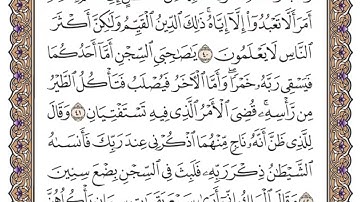 أَمَرَ أَلَّا تَعْبُدُوٓا۟ إِلَّآ إِيَّاهُ ۚ ذَٰلِكَ ٱلدِّينُ ٱلْقَيِّمُ وَلَٰكِنَّ أَكْثَرَ
ٱلنَّاسِ لَا يَعْلَمُونَ ٤٠ يَٰصَىٰحِبَىِ ٱلسِّجْنِ أَمَّآ أَحَدُكُمَا
فَيَسْقِى رَبَّهُۥ خَمْرًا ۖ وَأَمَّا ٱلْءَاخَرُ فَيُصْلَبُ فَتَأْكُلُ ٱلطَّيْرُ
مِن رَّأْسِهِۦ ۚ قُضِىَ ٱلْأَمْرُ ٱلَّذِى فِيهِ تَسْتَفْتِيَانِ ٤١ وَقَالَ
لِلَّذِى ظَنَّ أَنَّهُۥ نَاجٍ مِّنْهُمَا ٱذْكُرْنِى عِندَ رَبِّكَ فَأَنسَىٰهُ
ٱلشَّيْطَٰنُ ذِكْرَ رَبِّهِۦ فَلَبِثَ فِى ٱلسِّجْنِ بِضْعَ سِنِينَ